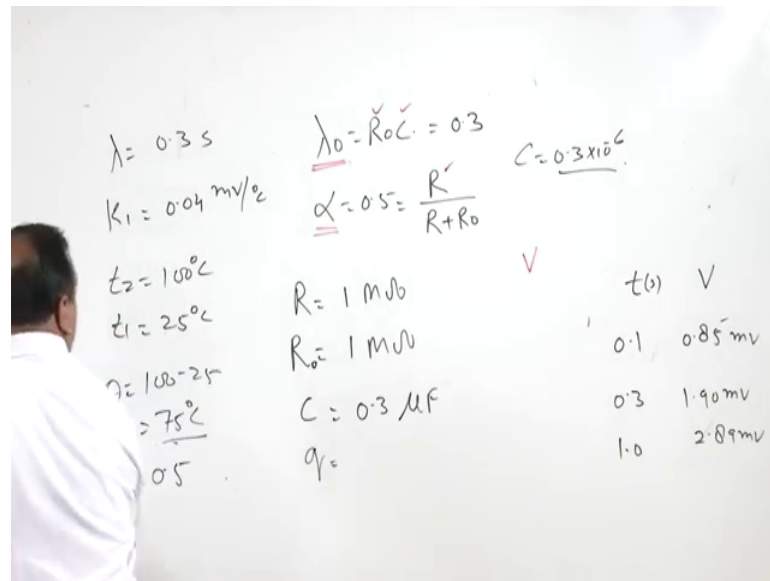 λ = 0.3 s
K₁ = 0.04 mv/°c
t₂ = 100°C
t₁ = 25°C
= 100-25
= 75°C
0.5
λ₀ = R₀C. = 0.3
α = 0.5 = R / R+R₀
C = 0.3×10⁻⁶
R = 1 MΩ
R₀ = 1 MΩ
C = 0.3 μF
q =
V
t(s) V
0.1 0.85 mv
0.3 1.90 mv
1.0 2.89 mv